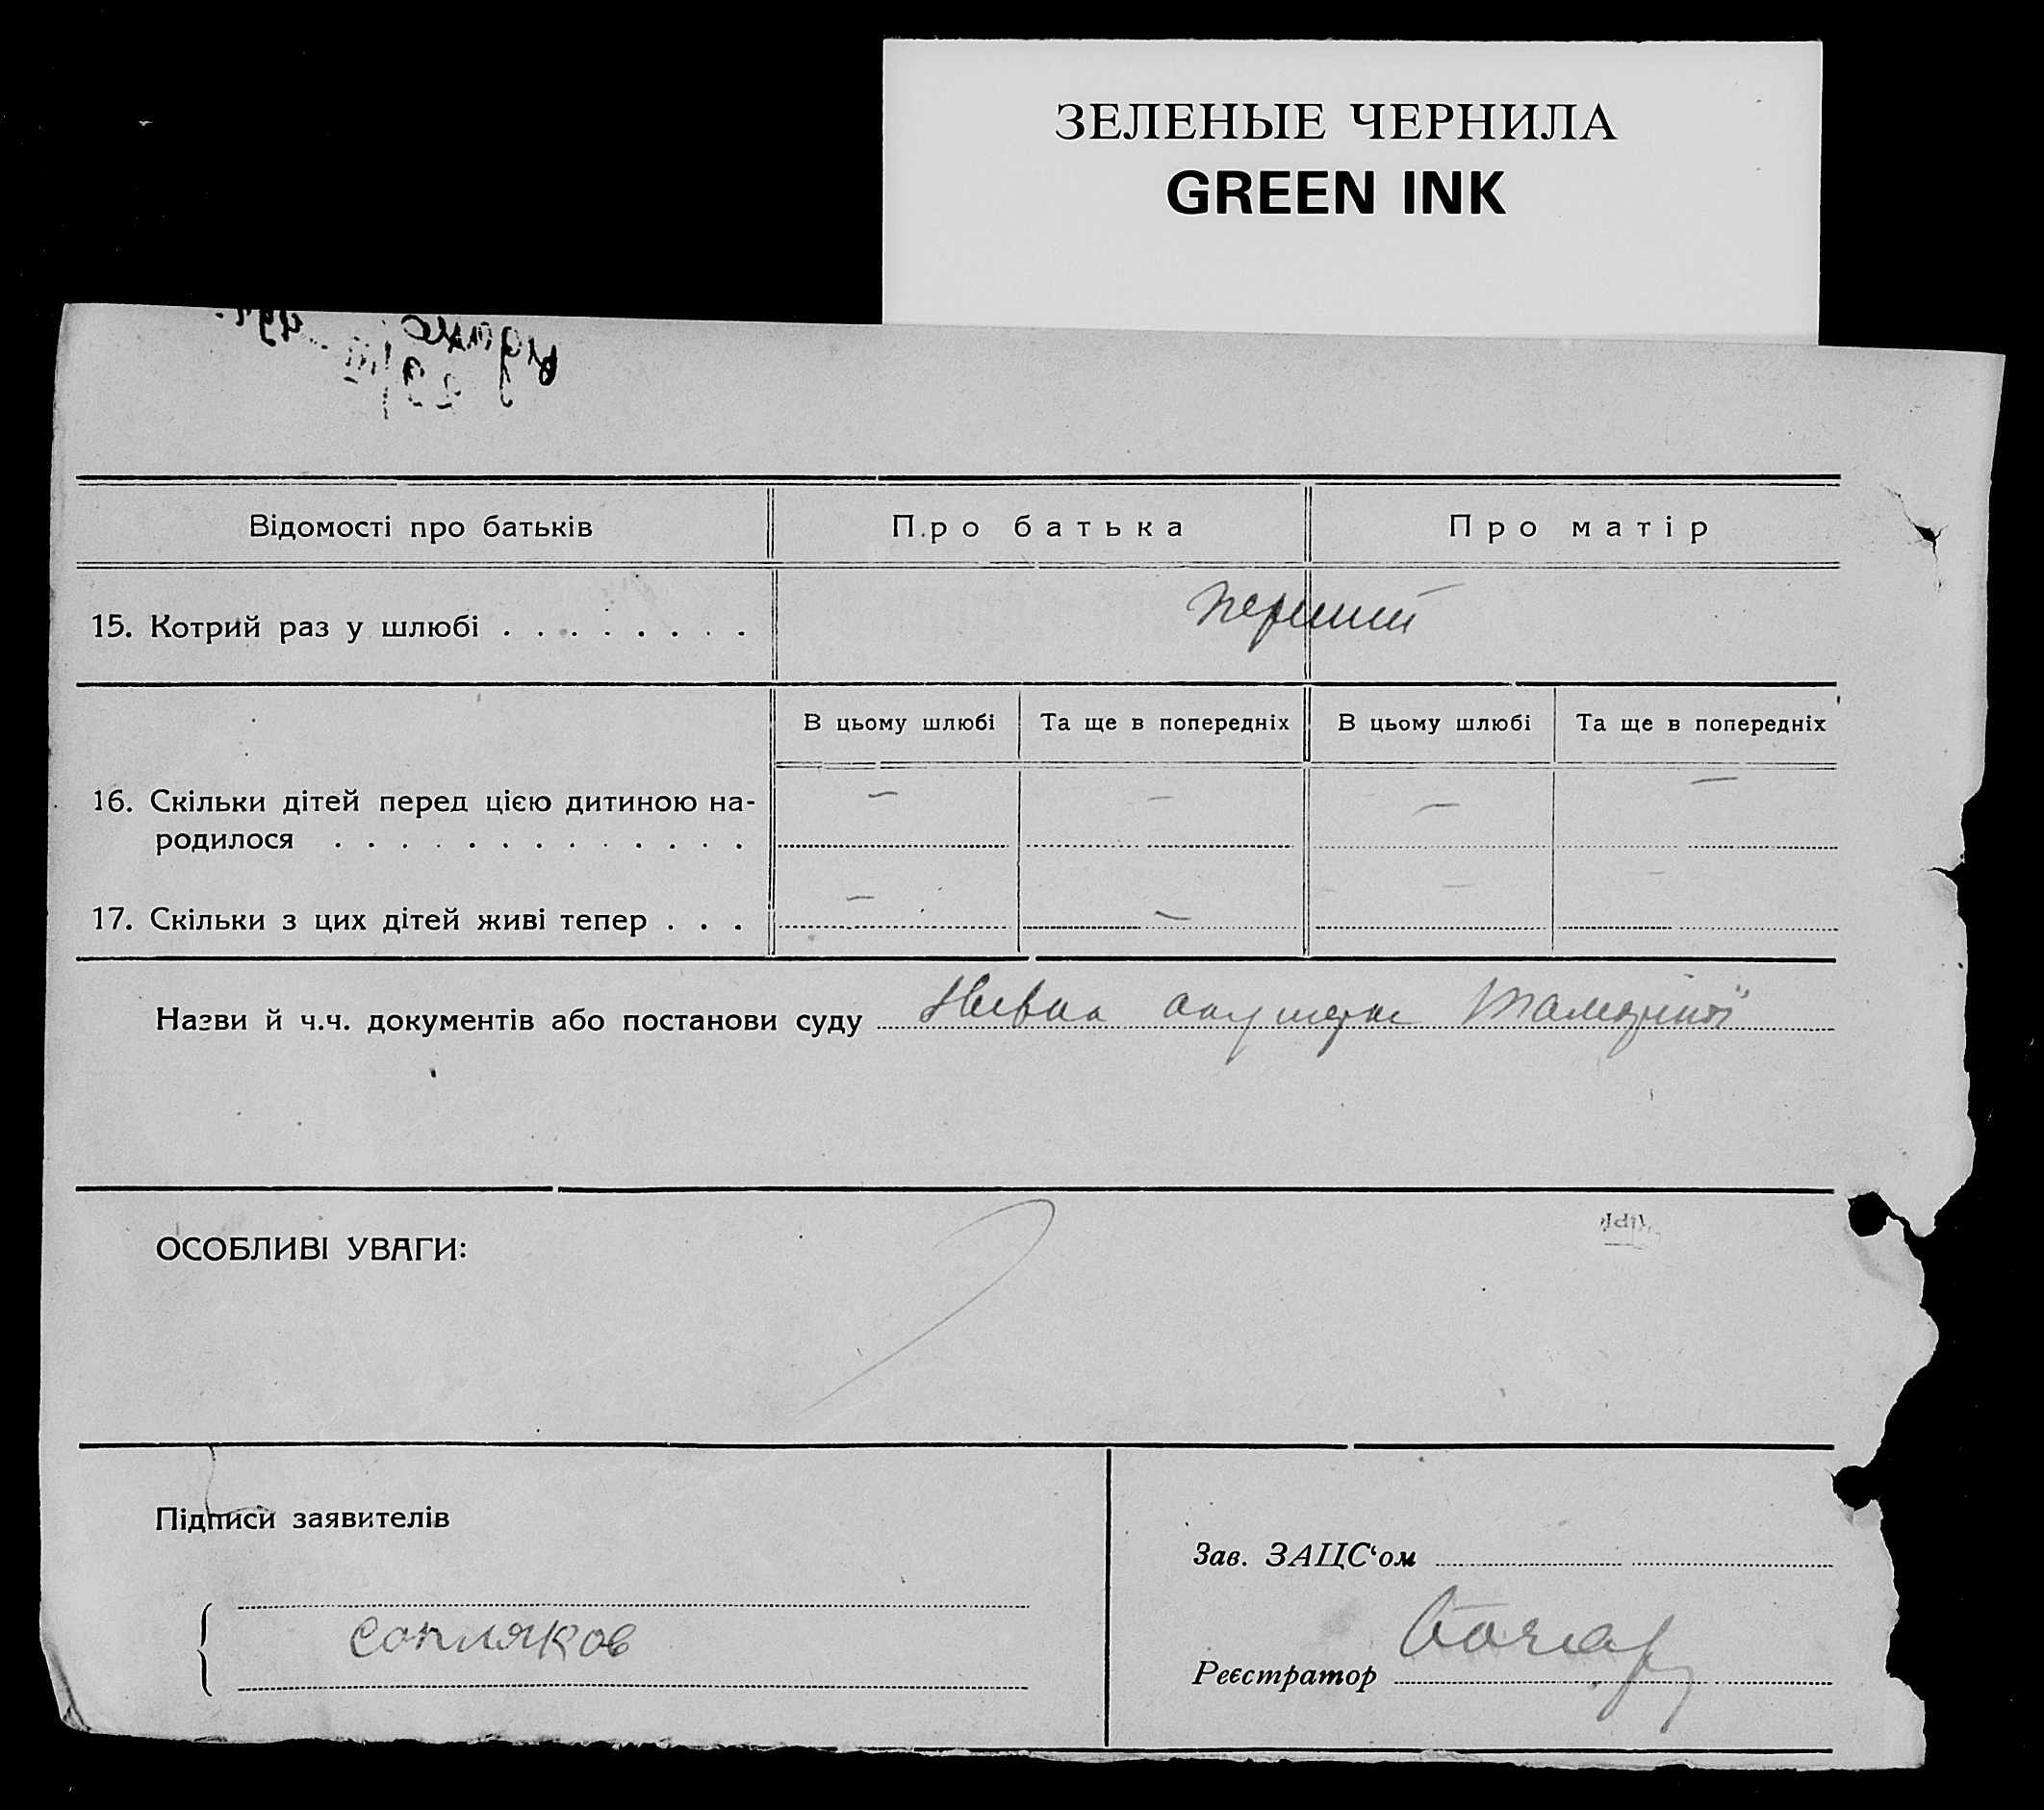 ЗЕЛЕНЫЕ ЧЕРНИЛА
GREEN INK
Відомості про батьків
Про батька
Про матір
15. Котрий раз у шлюбі . . . . . . . .
перший
В цьому шлюбі
Та ще в попередніх
В цьому шлюбі
Та ще в попередніх
16. Скільки дітей перед цією дитиною на-
родилося . . . . . . . . . . . . .
— — — —
17. Скільки з цих дітей живі тепер . . .
— — — —
Назви й ч.ч. документів або постанови суду акушерки
ОСОБЛИВІ УВАГИ:
Підписи заявителів
Зав. ЗАЦС‘ом
Сопляков
Реєстратор Бочар